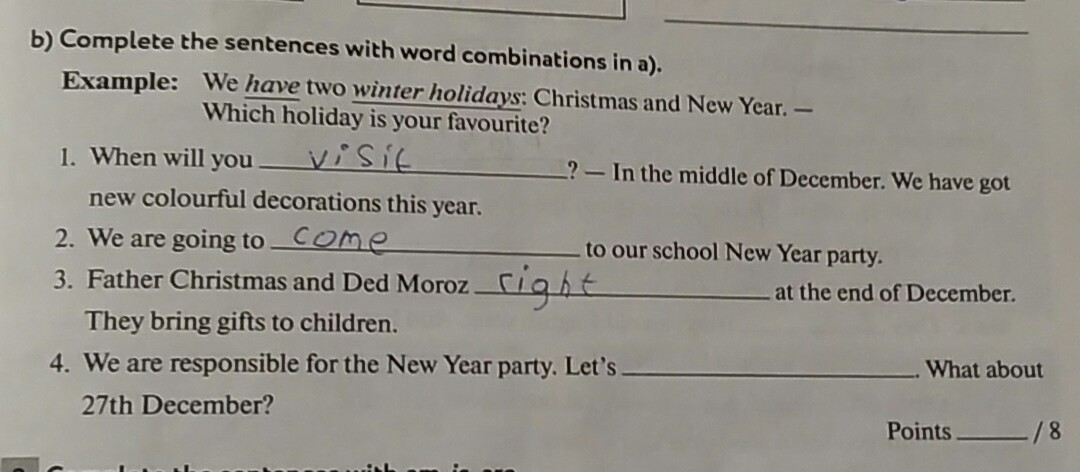 b) Complete the sentences with word combinations in a).
Example: We have two winter holidays: Christmas and New Year. —
Which holiday is your favourite?
1. When will you visit ? — In the middle of December. We have got
new colourful decorations this year.
2. We are going to come to our school New Year party.
3. Father Christmas and Ded Moroz right at the end of December.
They bring gifts to children.
4. We are responsible for the New Year party. Let's ______. What about
27th December?
Points ______ / 8